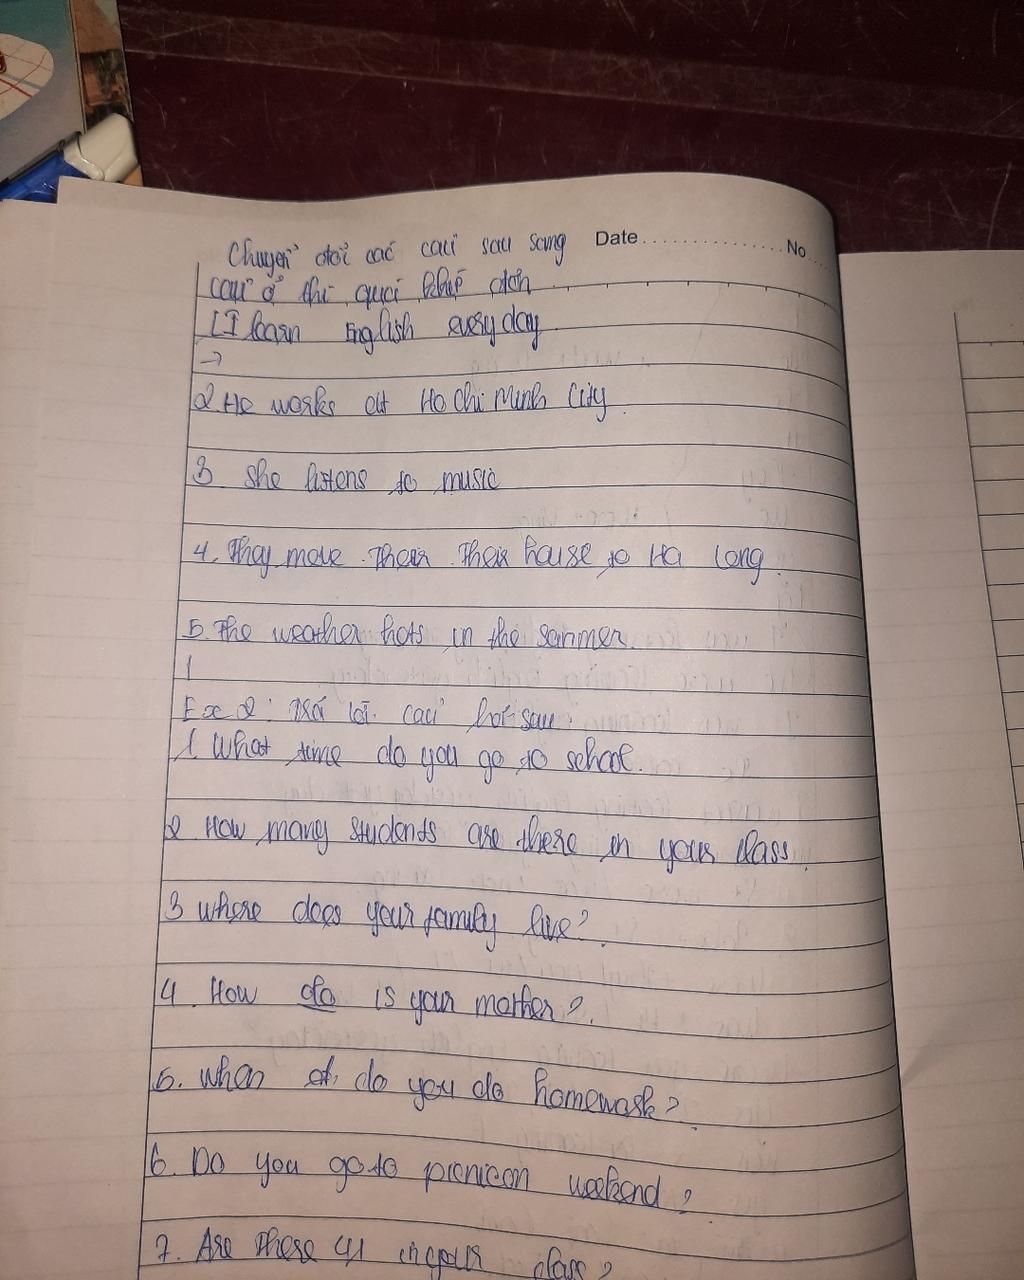 Chuyển đổi các câu sau sang Date No
câu ở thì quá khứ đơn
1. I learn English every day
→
2 He works at Ho Chi Minh City
3 She listens to music
4. They move their their house to Ha Long
5. The weather hots in the summer.
1
Ex 2: Trả lời câu hỏi sau:
1. What time do you go to school.
2 How many students are there in your class
3 where does your family live?
4. How do is your mother?
5. When do you do homework?
6. Do you go to picnic on weekend?
7. Are there 41 in your class?